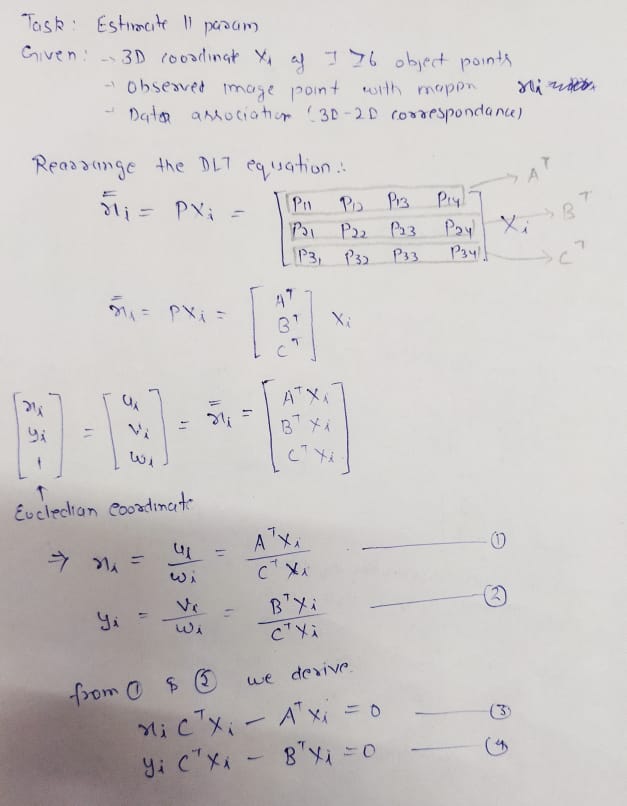 Task: Estimate 11 param
Given: → 3D coordinate Xi of I ≥6 object points
→ observed image point with mapon xi
→ Data association (3D-2D correspondance)
Rearrange the DLT equation:
x̿i = PXi = [P11 P12 P13 P14] → A^T
[P21 P22 P23 P24] Xi → B^T
[P31 P32 P33 P34] → C^T
x̿i = PXi = [A^T
B^T
C^T] Xi
[xi yi 1] = [ui vi wi] = x̿i = [A^T Xi
B^T Xi
C^T Xi]
↑
Eucledian coordinate
⇒ xi = ui/wi = A^T Xi / C^T Xi — ①
yi = vi/wi = B^T Xi / C^T Xi — ②
from ① & ② we derive.
xi C^T Xi - A^T Xi = 0 — ③
yi C^T Xi - B^T Xi = 0 — ④